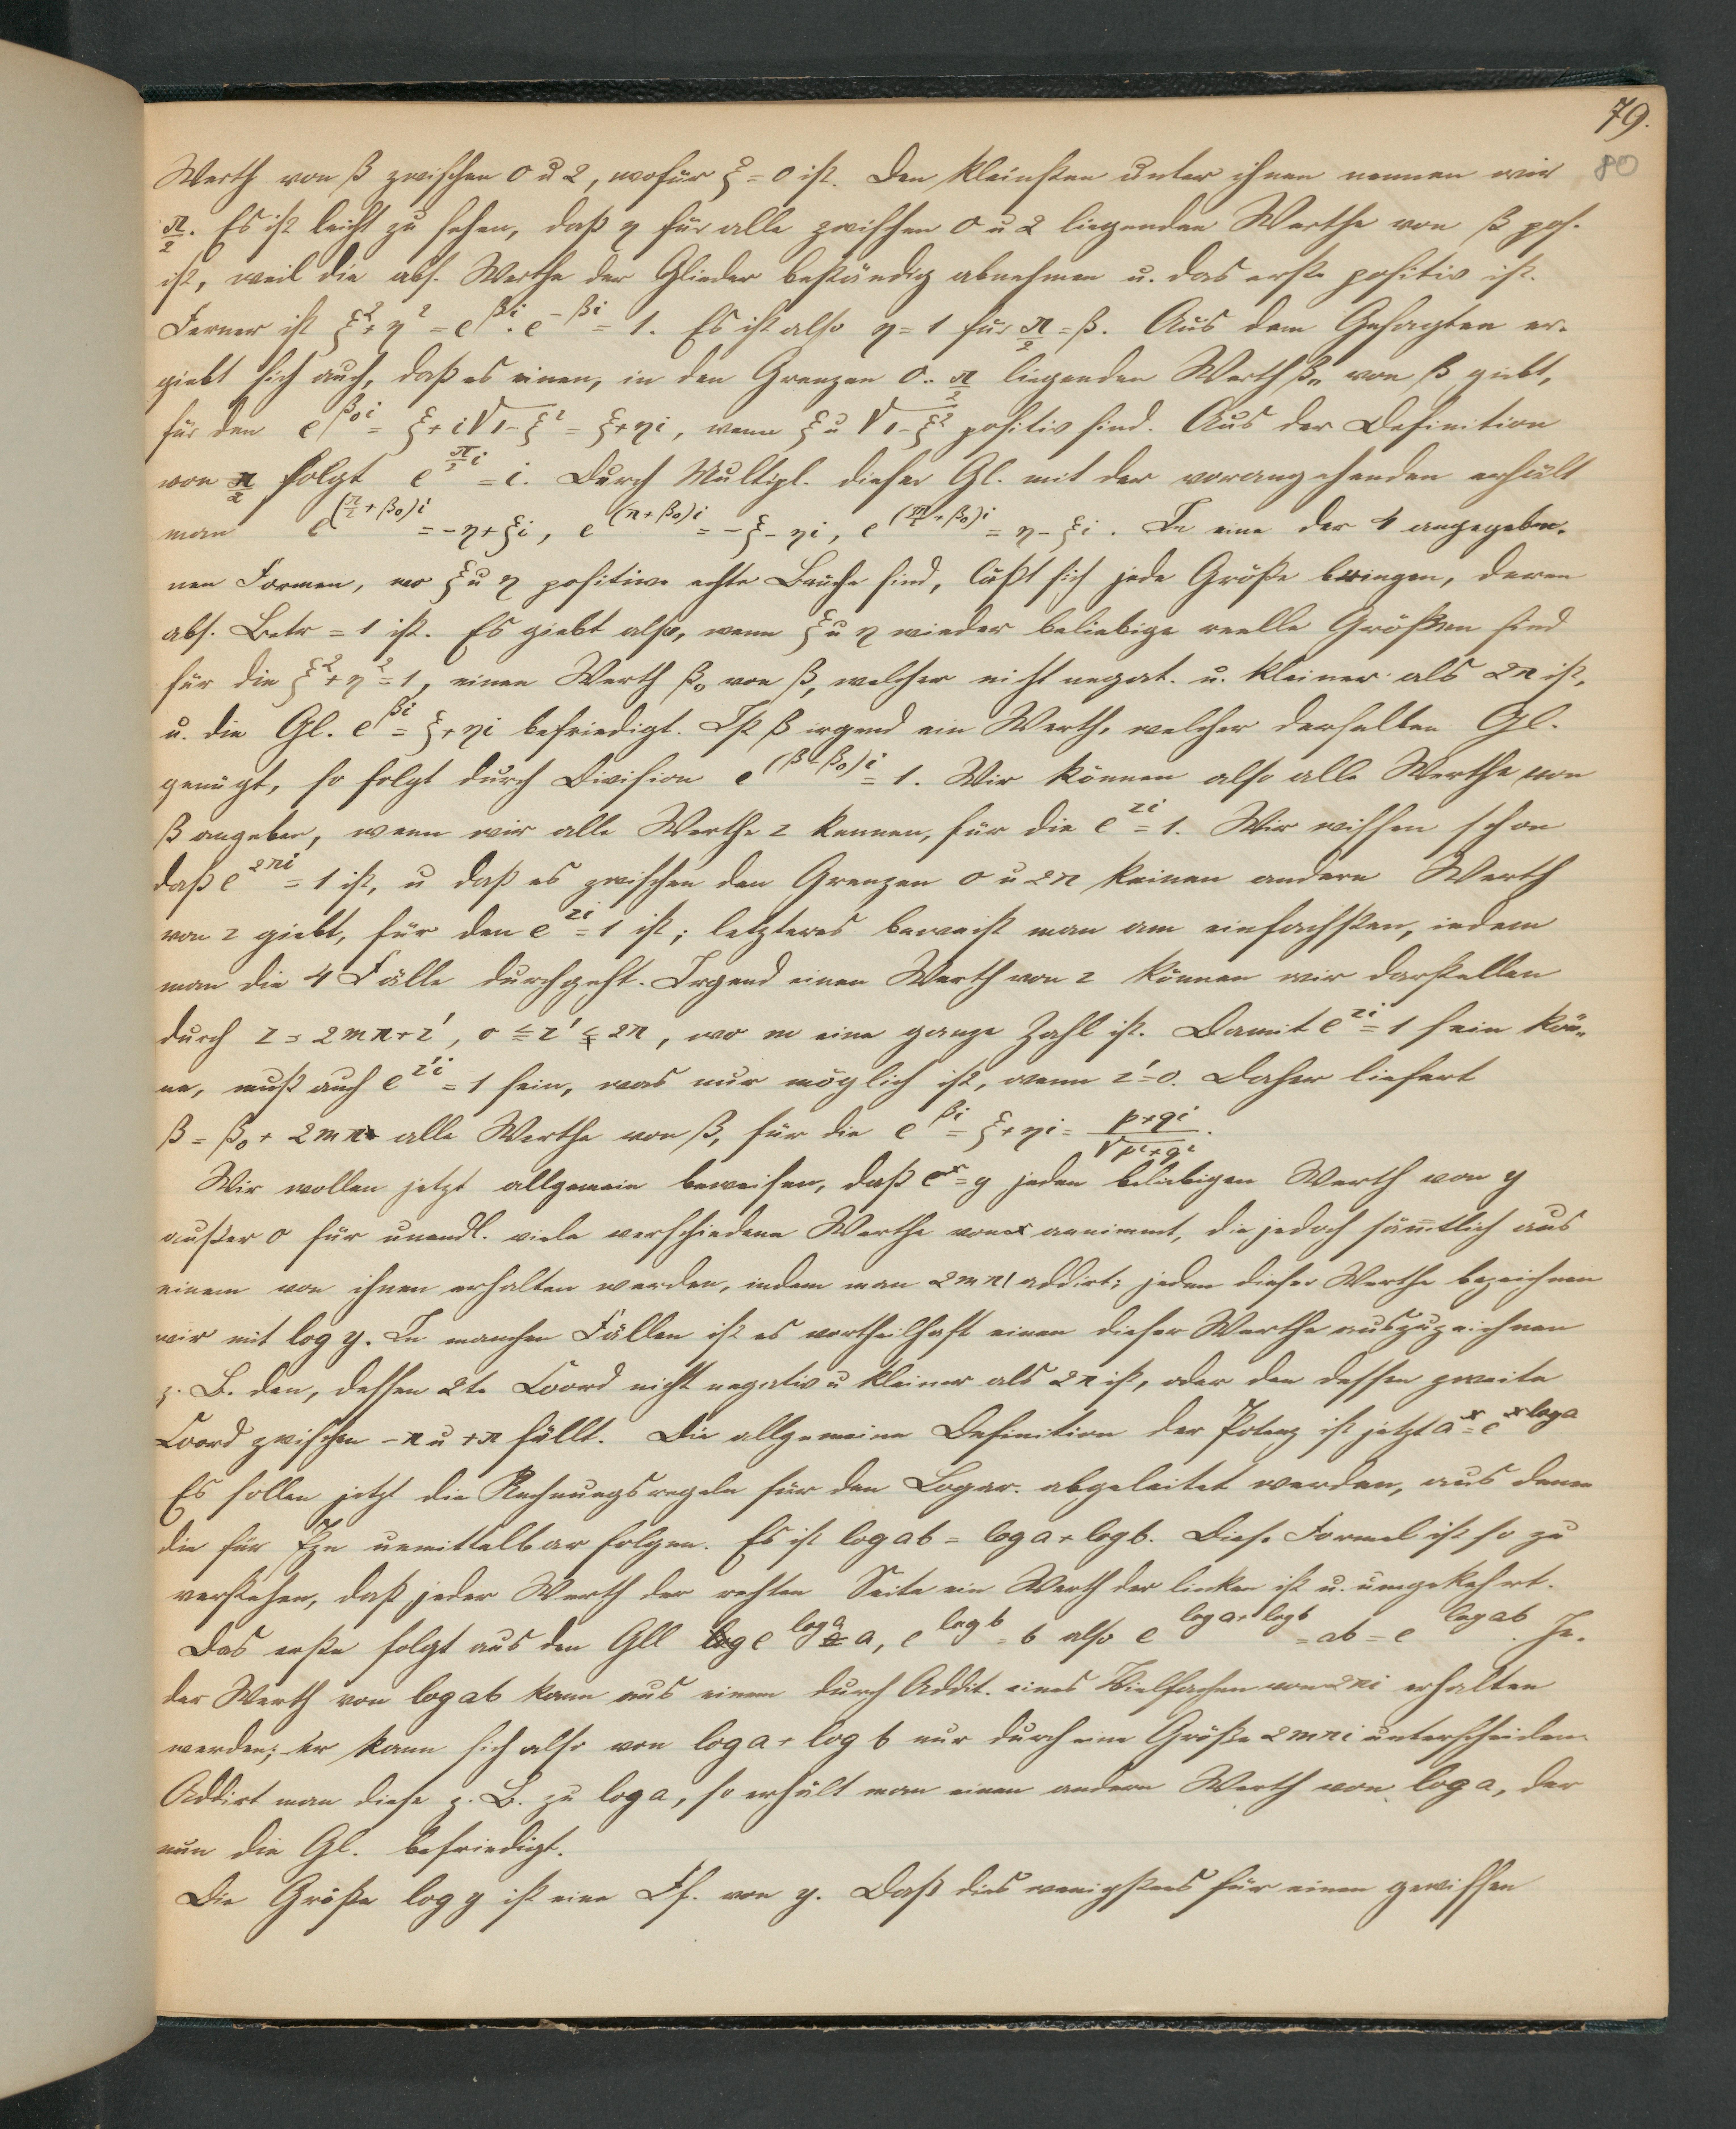 79.
80
Werth von β zwischen 0 u 2, wofür ξ = 0 ist. Den kleinsten unter ihnen nennen wir
π/2. Es ist leicht zu sehen, daß η für alle zwischen 0 u 2 liegenden Werthe von β pos.
ist, weil die abs. Werthe der Glieder beständig abnehmen u. das erste positiv ist.
Ferner ist ξ²+η² = e^{βi}·e^{-βi} = 1. Es ist also η = 1 für π/2 = β. Aus dem Gesagten er-
giebt sich auch, daß es einen, in den Grenzen 0..π/2 liegenden Werth β₀ von β giebt,
für den e^{β₀i} = ξ+i√1-ξ² = ξ+ηi, wenn ξ u √1-ξ² positiv sind. Aus der Definition
von π/2 folgt e^{π/2 i} = i. Durch Multipl. dieser Gl. mit der vorangehenden erhält
man e^{(π/2+β₀)i} = -η+ξi, e^{(π+β₀)i} = -ξ-ηi, e^{(3π/2+β₀)i} = η-ξi. In eine der 4 angegebe-
nen Formen, wo ξ u η positive echte Brüche sind, läßt sich jede Größe bringen, deren
abs. Betr = 1 ist. Es giebt also, wenn ξ u η wieder beliebige reelle Größen sind
für die ξ²+η² = 1, einen Werth β₀ von β, welcher nicht negat. u. kleiner als 2π ist,
u. die Gl. e^{βi} = ξ+ηi befriedigt. Ist β irgend ein Werth, welcher derselben Gl.
genügt, so folgt durch Division e^{(β-β₀)i} = 1. Wir können also alle Werthe von
β angeben, wenn wir alle Werthe z kennen, für die e^{zi} = 1. Wir wissen schon
daß e^{2πi} = 1 ist, u daß es zwischen den Grenzen 0 u 2π keinen andern Werth
von z giebt, für den e^{zi} = 1 ist; letzteres beweist man am einfachsten, indem
man die 4 Fälle durchgeht. Irgend einen Werth von z können wir darstellen
durch z = 2mπ+z', 0 ≦ z' ≨ 2π, wo m eine ganze Zahl ist. Damit e^{zi} = 1 sein kön-
ne, muß auch e^{z'i} = 1 sein, was nur möglich ist, wenn z' = 0. Daher liefert
β = β₀ + 2mπ alle Werthe von β, für die e^{βi} = ξ+ηi = p+qi/√p²+q².
Wir wollen jetzt allgemein beweisen, daß e^x = y jeden beliebigen Werth von y
außer 0 für unendl. viele verschiedene Werthe von x annimmt, die jedoch sämtlich aus
einem von ihnen erhalten werden, indem man 2mπi addirt; jeden dieser Werthe bezeichnen
wir mit log y. In manchen Fällen ist es vortheilhaft einen dieser Werthe auszuzeichnen
z. B. den, dessen 2te Coord nicht negativ u kleiner als 2π ist, oder den dessen zweite
Coord zwischen -π u +π fällt. Die allgemeine Definition der Potenz ist jetzt a^x = e^{x log a}
Es sollen jetzt die Rechnungsregeln für den Logar. abgeleitet werden, aus denen
die für Pzn unmittelbar folgen. Es ist log ab = log a + log b. Diese Formel ist so zu
verstehen, daß jeder Werth der rechten Seite ein Werth der linken ist u. umgekehrt.
Das erste folgt aus den Gll e^{log a} = a, e^{log b} = b also e^{log a + log b} = ab = e^{log ab}. Je-
der Werth von log ab kann aus einem durch Addit. eines Vielfachen von 2πi erhalten
werden; er kann sich also von log a + log b nur durch eine Größe 2mπi unterscheiden.
Addirt man diese z. B. zu log a, so erhält man einen andern Werth von log a, der
nun die Gl. befriedigt.
Die Größe log y ist eine Ff. von y. Daß dies wenigstens für einen gewissen